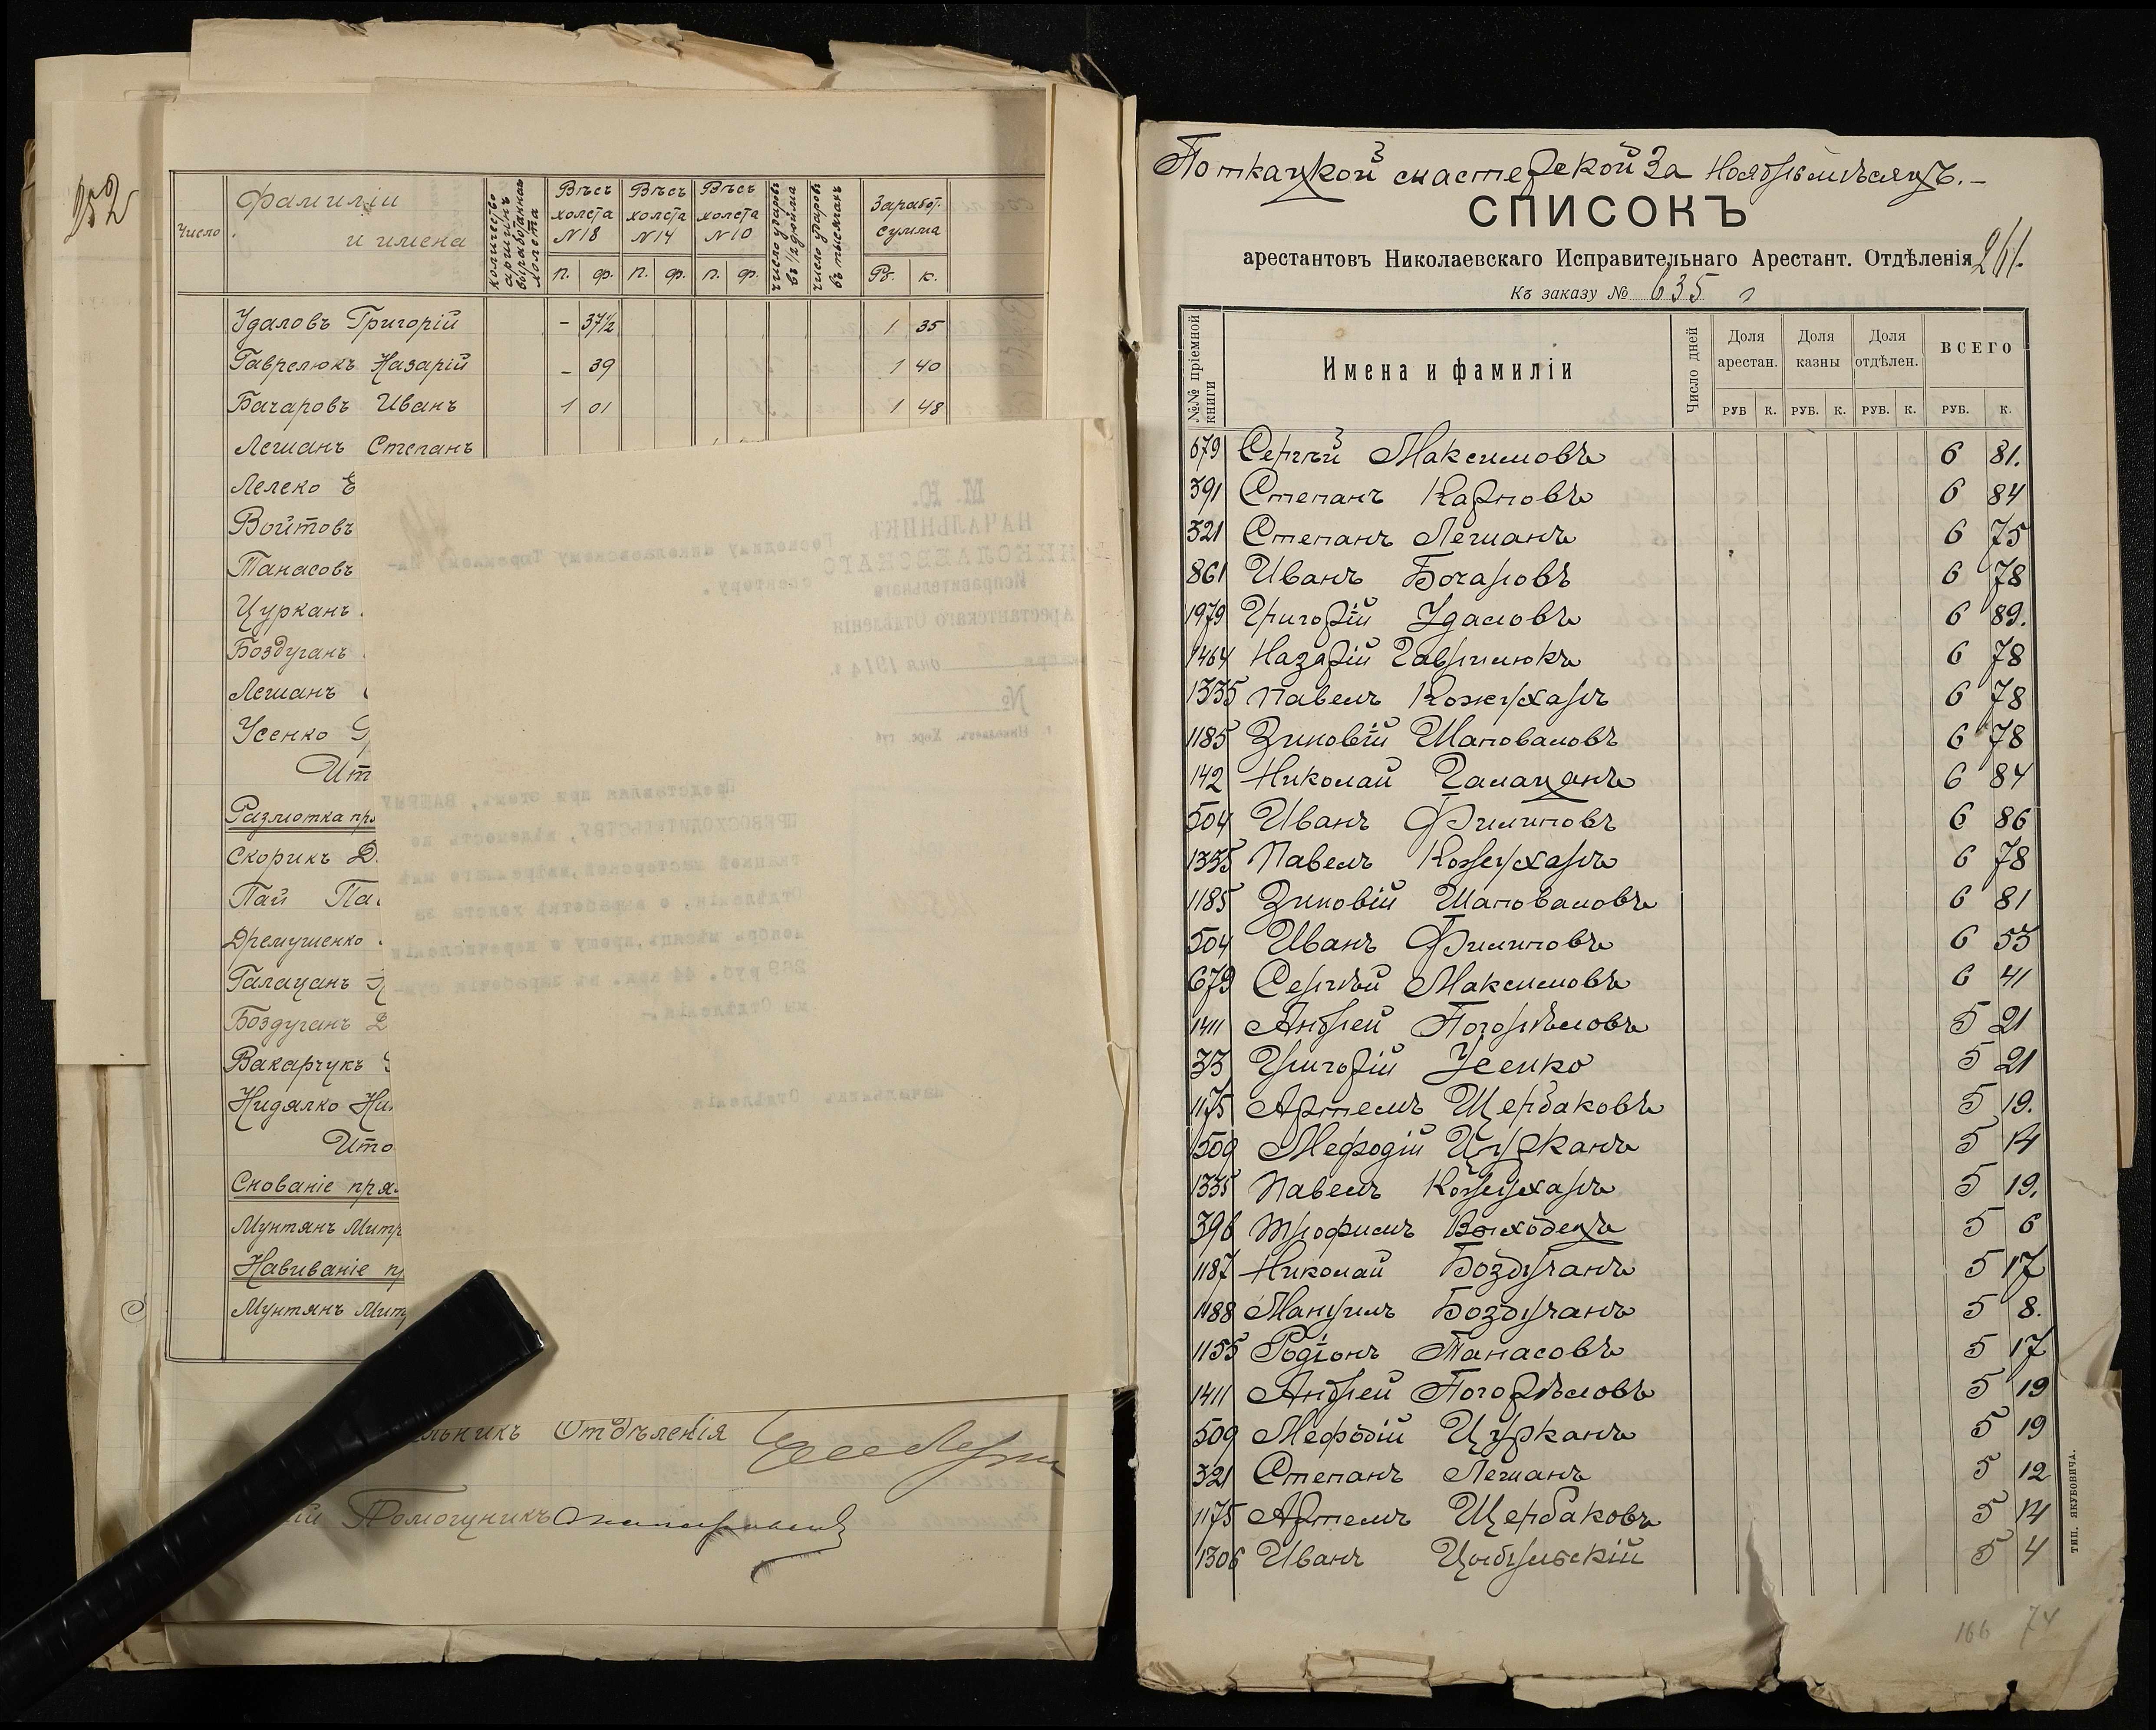 252
Число
Фамиліи
и имена
количество аршинъ выработаннаго холста
Вѣсъ холста №18
Вѣсъ холста №14
Вѣсъ холста №10
число ударовъ въ 1/2 дюйма
число ударовъ въ тысячахъ
Заработ. сумма
п. ф. п. ф. п. ф. Рб. к.
Удаловъ Григорій – 37½ 1 35
Гаврелюкъ Назарій – 39 1 40
Бачаровъ Иванъ 1 01 1 48
Лешанъ Степанъ
Лелеко Е
Войтовъ
Танасовъ
Цурканъ
Боздуганъ
Лешанъ
Усенко
Ит
Размотка пр
Скорикъ Д
Пай Па
Дремушенко
Галацанъ
Боздуганъ Д
Вакарчукъ
Нидялко Ни
Ито
Снованіе пря
Мунтянъ Митр
Навиваніе п
Мунтянъ Мит
льникъ Отдѣленія
ій Помощникъ
М. Ю.
НАЧАЛЬНИКЪ
НИКОЛАЕВСКАГО
Исправительнаго
Арестантскаго Отдѣленія
дня 1914 г.
№
г. Николаевъ, Херс. губ.
Господину Николаевскому Тюремному Ин-
спектору.
Представляя при этомъ, ВАШЕМУ
ПРЕВОСХОДИТЕЛЬСТВУ, вѣдомость по
ткацкой мастерской, ввѣреннаго мнѣ
Отдѣленія, о выработкѣ холста за
ноябрь мѣсяцъ, прошу о перечисленіи
269 руб. 44 коп. въ заработія сум-
мы Отдѣленія.-
Начальникъ Отдѣленія
По ткацкой мастерской За Ноябрь мѣсяцъ.–
СПИСОКЪ
арестантовъ Николаевскаго Исправительнаго Арестант. Отдѣленія
261.
Къ заказу № 635
№№ пріемной книги
Имена и фамиліи
Число дней
Доля арестан.
Доля казны
Доля отдѣлен.
ВСЕГО
РУБ К. РУБ. К. РУБ. К. РУБ. К.
679 Сергѣй Максимовъ 6 81.
391 Степанъ Карповъ 6 84
321 Степанъ Лешанъ 6 75
861 Иванъ Бочаровъ 6 78
1979 Григорій Удаловъ 6 89.
1464 Назарій Гаврилюкъ 6 78
1335 Павелъ Кожухаръ 6 78
1185 Зиновій Шаповаловъ 6 78
142 Николай Галацанъ 6 84
504 Иванъ Филиповъ 6 86
1335 Павелъ Кожухаръ 6 78
1185 Зиновій Шаповаловъ 6 81
504 Иванъ Филиповъ 6 53
679 Сергѣй Максимовъ 6 41
1411 Андрей Погорѣловъ 5 21
33 Григорій Усенко 5 21
1175 Артемъ Щербаковъ 5 19.
509 Мефодій Цурканъ 5 14
1335 Павелъ Кожухаръ 5 19.
396 Трофимъ Выходецъ 5 6
1187 Николай Боздуганъ 5 17
1188 Мануилъ Боздуганъ 5 8.
1155 Родіонъ Танасовъ 5 17
1411 Андрей Погорѣловъ 5 19
509 Мефодій Цурканъ 5 19
321 Степанъ Лешанъ 5 12
1175 Артемъ Щербаковъ 5 14
1306 Иванъ Цыбульскій 5 4
166 74
ТИП. ЯКУБОВИЧА.